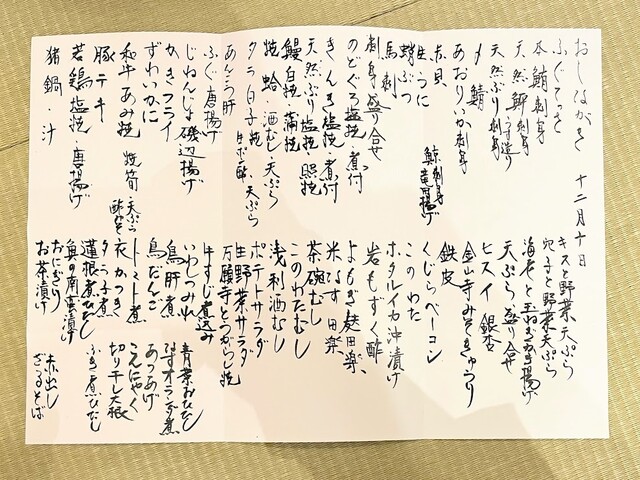 おしながき 十二月十日
ふぐてっさ
本鮪刺身
天然鮃刺身 うす造り
天然ぶり刺身
〆鯖
あおりいか刺身
赤貝 鯨刺身 竜田揚げ
生うに
蛸ぶつ
馬刺
刺身盛り合せ
のどぐろ塩焼・煮付
きんき塩焼・煮付
天然ぶり塩焼・照焼
鰻白焼・蒲焼
焼蛤・酒むし・天ぷら
タラ白子 焼 ポン酢 天ぷら
あんこう肝
ふぐ唐揚げ
じねんじょ磯辺揚げ
かきフライ
ずわいかに
和牛あみ焼 焼筍・天ぷら
豚テキ
若鶏塩焼・唐揚げ
猪鍋・汁
キスと野菜天ぷら
穴子と野菜天ぷら
海老と玉ねぎかき揚げ
天ぷら盛り合せ
ヒスイ銀杏
金山寺みそきゅうり
鉄皮
くじらベーコン
このわた
ホタルイカ沖漬け
岩もずく酢
よもぎ麩田楽
米なす田楽
茶碗むし
このわたむし
浅利酒むし
ポテトサラダ
生野菜サラダ
万願寺とうがらし焼
牛すじ煮込み
いわしつみれ 青菜おひたし
鳥肝煮
鳥だんご あつあげ
トマト煮 こんにゃく
衣かつぎ 切り干し大根
タラ子煮 ふき煮びたし
蓮根煮びたし
茄の南蛮漬け
おにぎり 赤出し
お茶漬け ざるそば